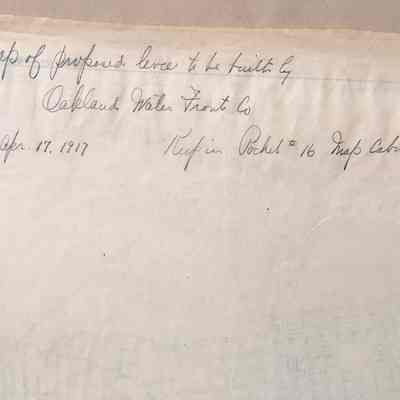 ap of proposed levee to be built by
Oakland Water Front Co
Apr. 17, 1917 Keep in Pocket # 16 Map Cab